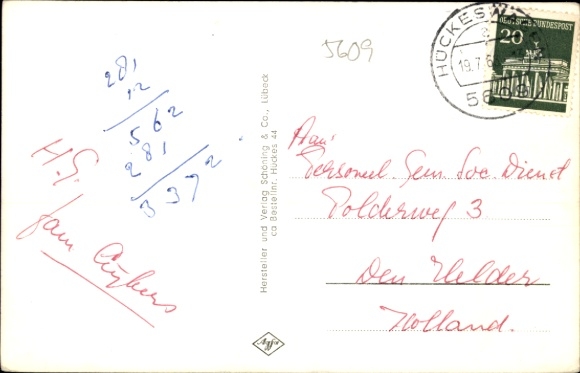 5609
HÜCKESWAGEN
19.7.6
5609
DEUTSCHE BUNDESPOST
20
281
12
562
281
3372
H.G.
fam Cuijpers
Hersteller und Verlag Schöning & Co., Lübeck
ca Bestellnr. Hückes 44
Aan:
Personeel. Gem. Soc. Dienst
Polderweg 3
Den Helder
Holland.
Agfa